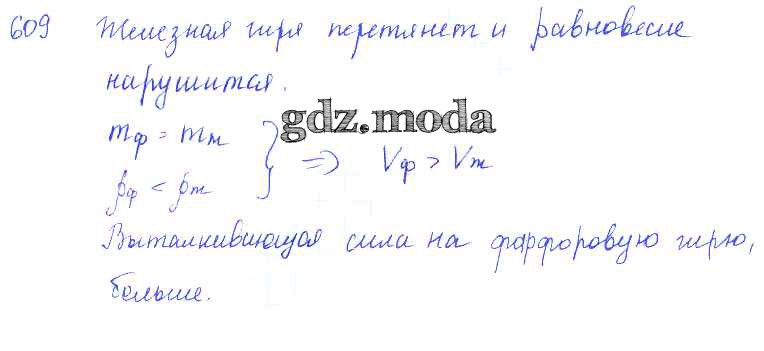 609 Железная гиря перетянет и равновесие
нарушится.
gdz.moda
mф = mж
ρф < ρж } => Vф > Vж
Выталкивающая сила на фарфоровую гирю,
больше.